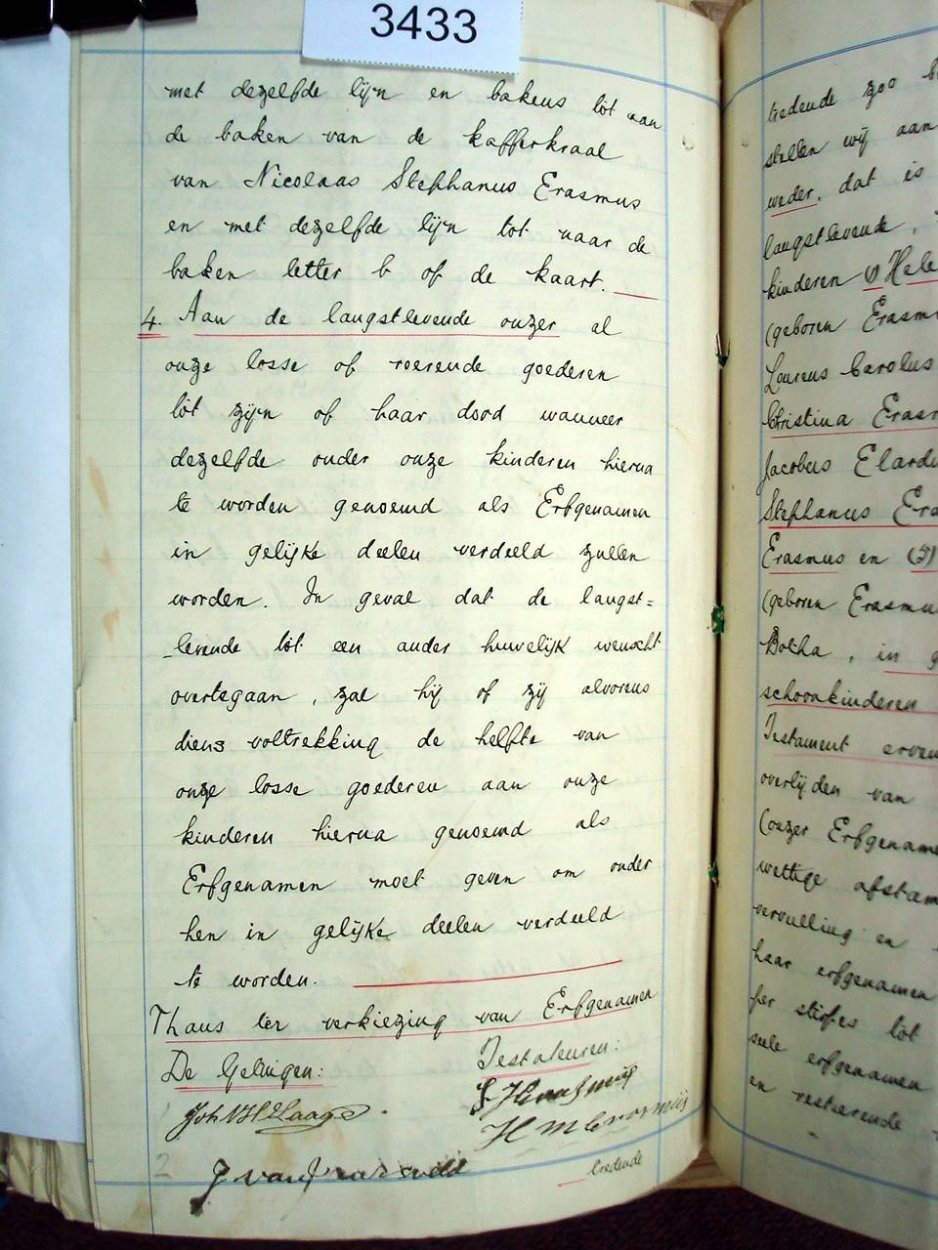 3433
met dezelfde lijn en bakens tot aan
de baken van de kafferkraal
van Nicolaas Stephanus Erasmus
en met dezelfde lijn tot naar de
baken letter b of de kaart.
4. Aan de langstlevende onzer al
onze losse of roerende goederen
tot zijn of haar dood wanneer
dezelfde onder onze kinderen hierna
te worden genoemd als Erfgenamen
in gelijke deelen verdeeld zullen
worden. In geval dat de langst=
-levende tot een ander huwelijk wenscht
overtegaan, zal hij of zij alvorens
diens voltrekking de helfte van
onze losse goederen aan onze
kinderen hierna genoemd als
Erfgenamen moet geven om onder
hen in gelijke deelen verdeeld
te worden.
Thans ter verkiezing van Erfgenamen
De Getuigen: Testateuren:
tredende
tredende zoo
stellen wij aan
weder, dat is
langstlevende,
kinderen (1) Hele
(geboren Erasm
Lourens Carolus
Christina Eras
Jacobus Elard
Stephanus Era
Erasmus en (5)
(geboren Erasmu
Botha, in g
schoonkinderen
Testament erven
overlijden van
(onzer Erfgename
wettige afstam
vervulling en
haar erfgenamen
per stirpes tot
erfgenamen
en resteerende